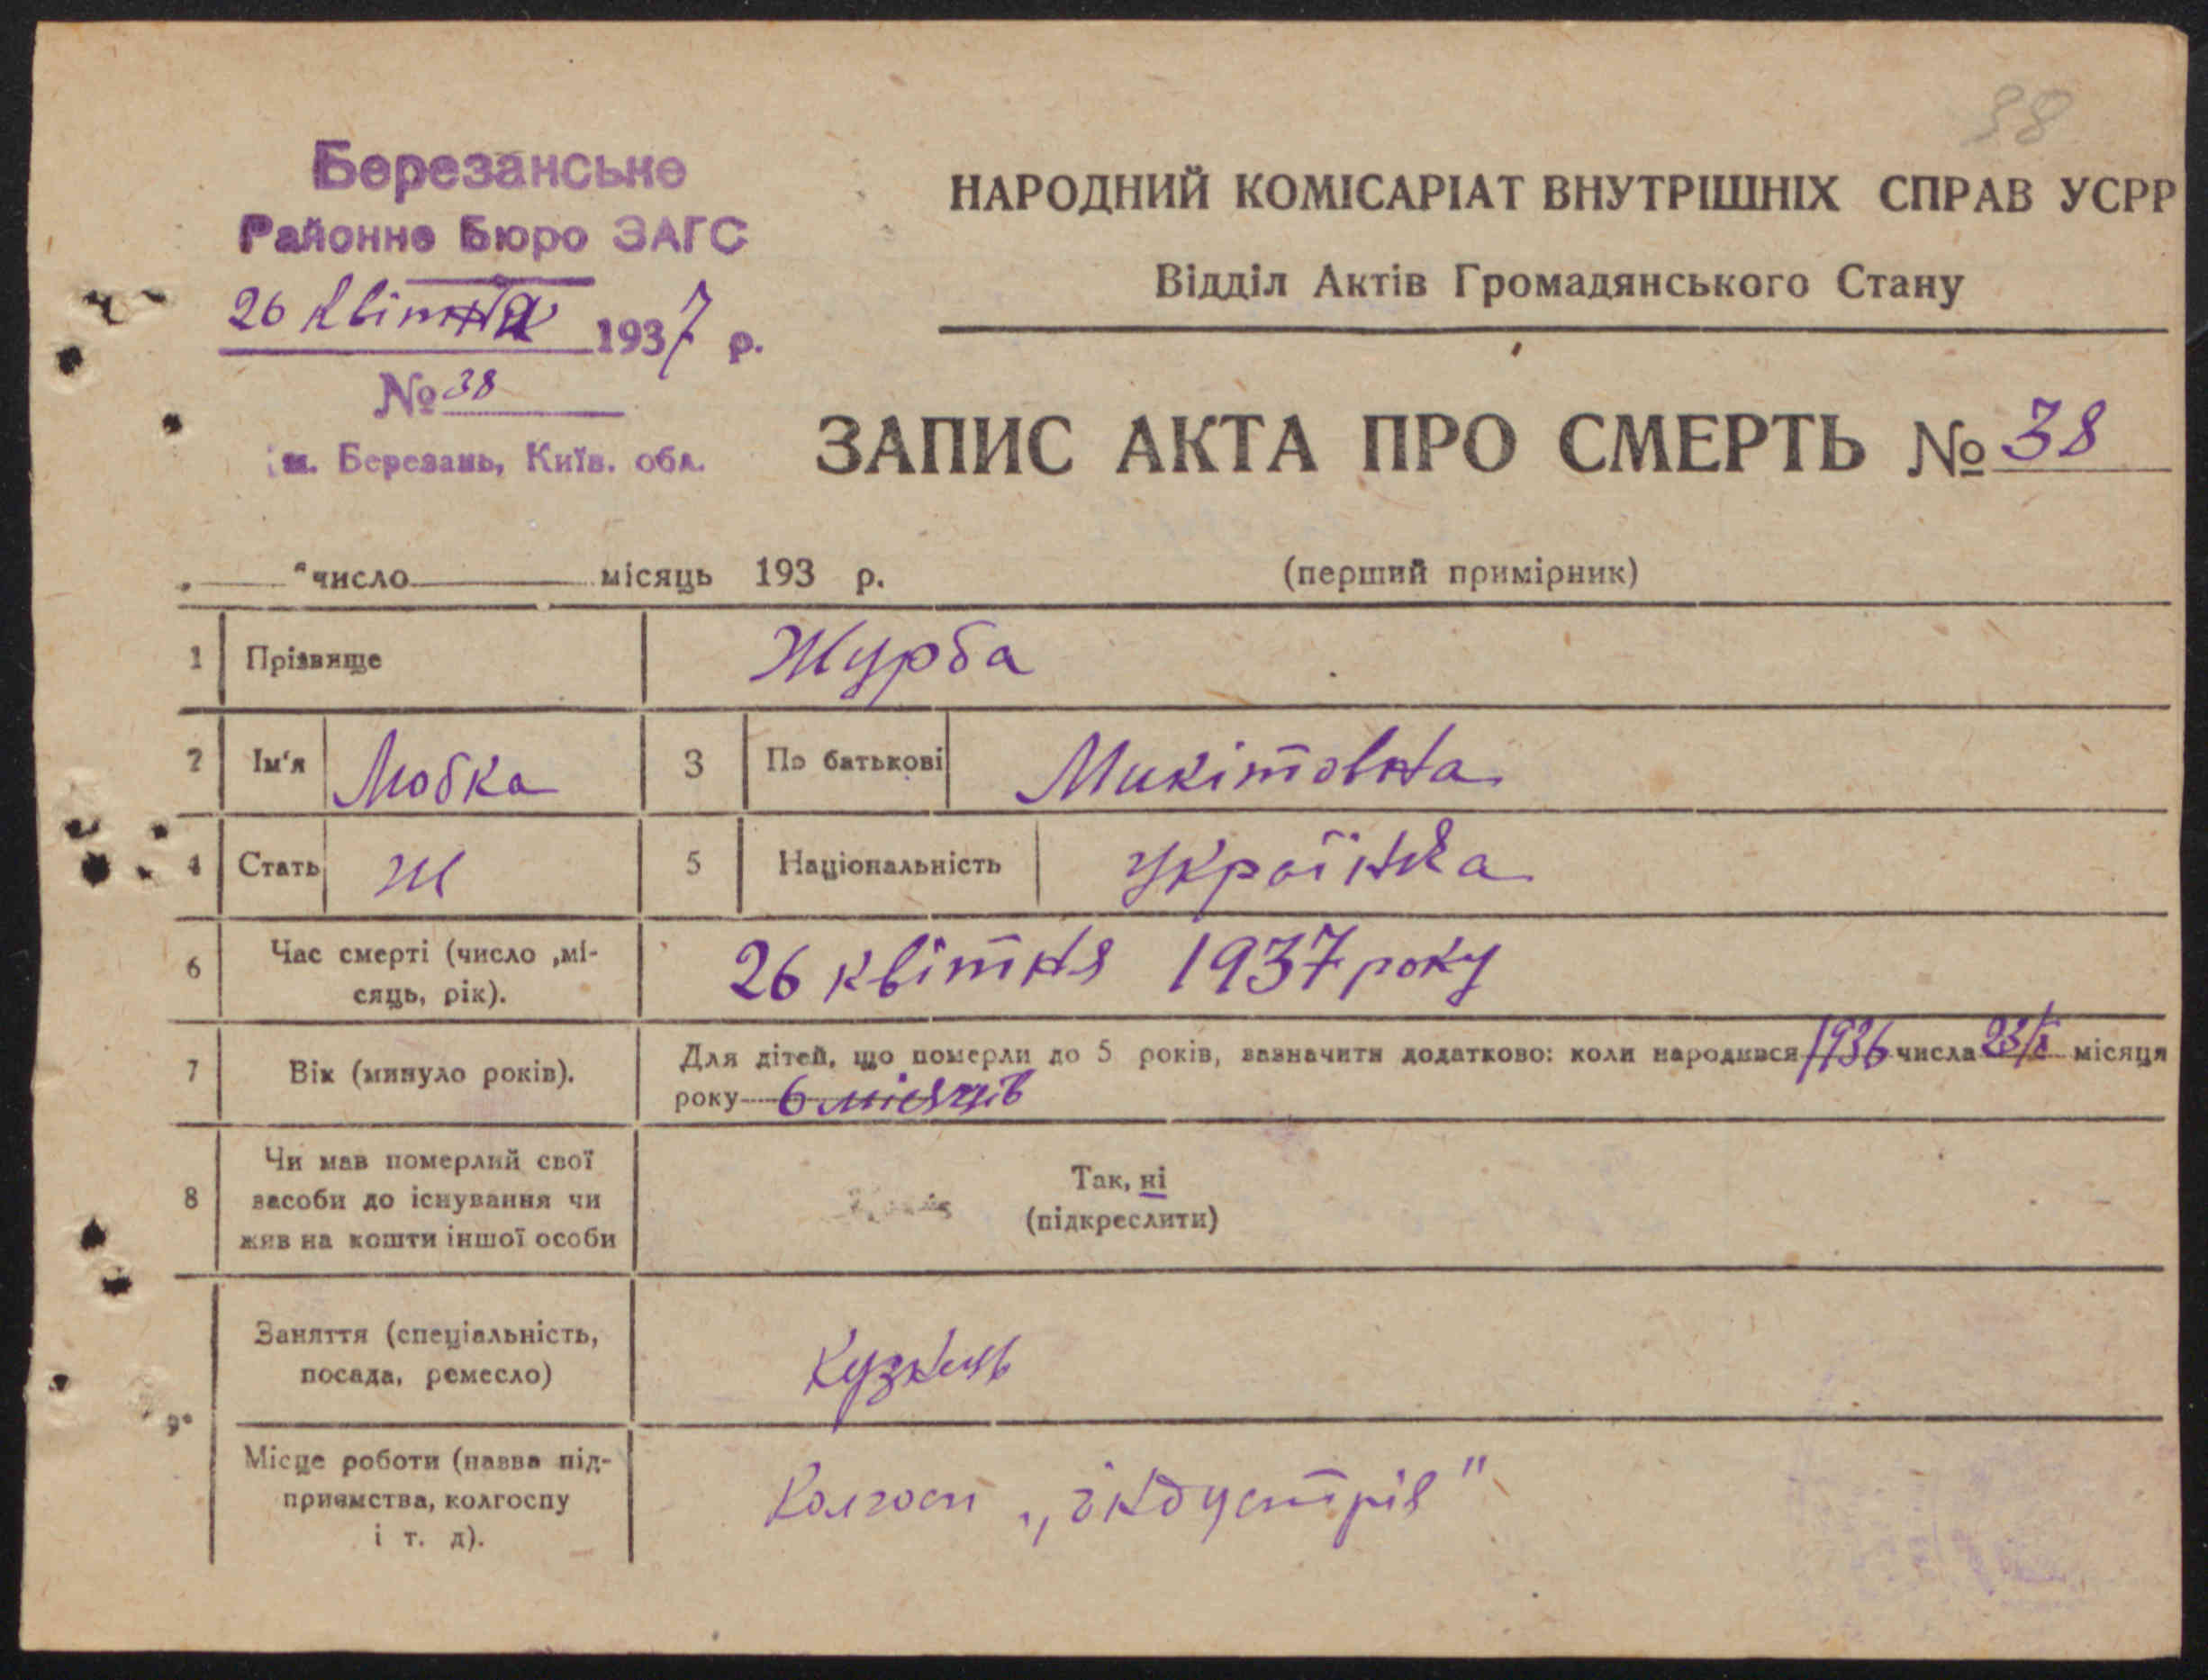 38
Березанське
Районне Бюро ЗАГС
26 квітня 1937 р.
№ 38
м. Березань, Київ. обл.
НАРОДНИЙ КОМІСАРІАТ ВНУТРІШНІХ СПРАВ УСРР
Відділ Актів Громадянського Стану
ЗАПИС АКТА ПРО СМЕРТЬ № 38
„ “ число місяць 193 р. (перший примірник)
1 Прізвище Журба
2 Ім'я Любка 3 По батькові Микітовна
4 Стать Ж 5 Національність Українка
6 Час смерті (число ,мі-
сяць, рік).
26 квітня 1937 року
7 Вік (минуло років).
Для дітей, що померли до 5 років, зазначити додатково: коли народився 1936 числа 23/X місяця
року 6 місяців
8 Чи мав померлий свої
засоби до існування чи
жив на кошти іншої особи
Так, ні
(підкреслити)
9
Заняття (спеціальність,
посада, ремесло)
Кузнець
Місце роботи (назва під-
приємства, колгоспу
і т. д).
Колгосп „індустрія"